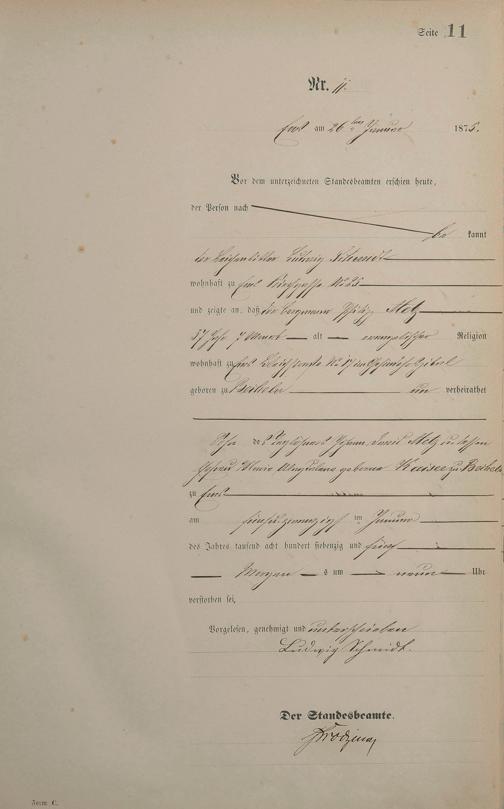 Seite 11
Nr. 11.
Ems am 26ten Januar 1875.
Vor dem unterzeichneten Standesbeamten erschien heute,
der Person nach
be kannt
der Ludwig Schmidt
wohnhaft zu Ems No 25
und zeigte an, daß der Bergmann Philipp Metz
57 Jahr 7 Monat alt evangelischer Religion
wohnhaft zu Ems No
geboren zu un verheirathet
Sohn des Johann Metz dessen
Ehefrau Maria Magdalena geborene zu
zu Ems
am fünfundzwanzigsten Januar
des Jahres tausend acht hundert siebenzig und fünf
Morgen s um neun Uhr
verstorben sei.
Vorgelesen, genehmigt und unterschrieben
Ludwig Schmidt.
Der Standesbeamte.
Form C.